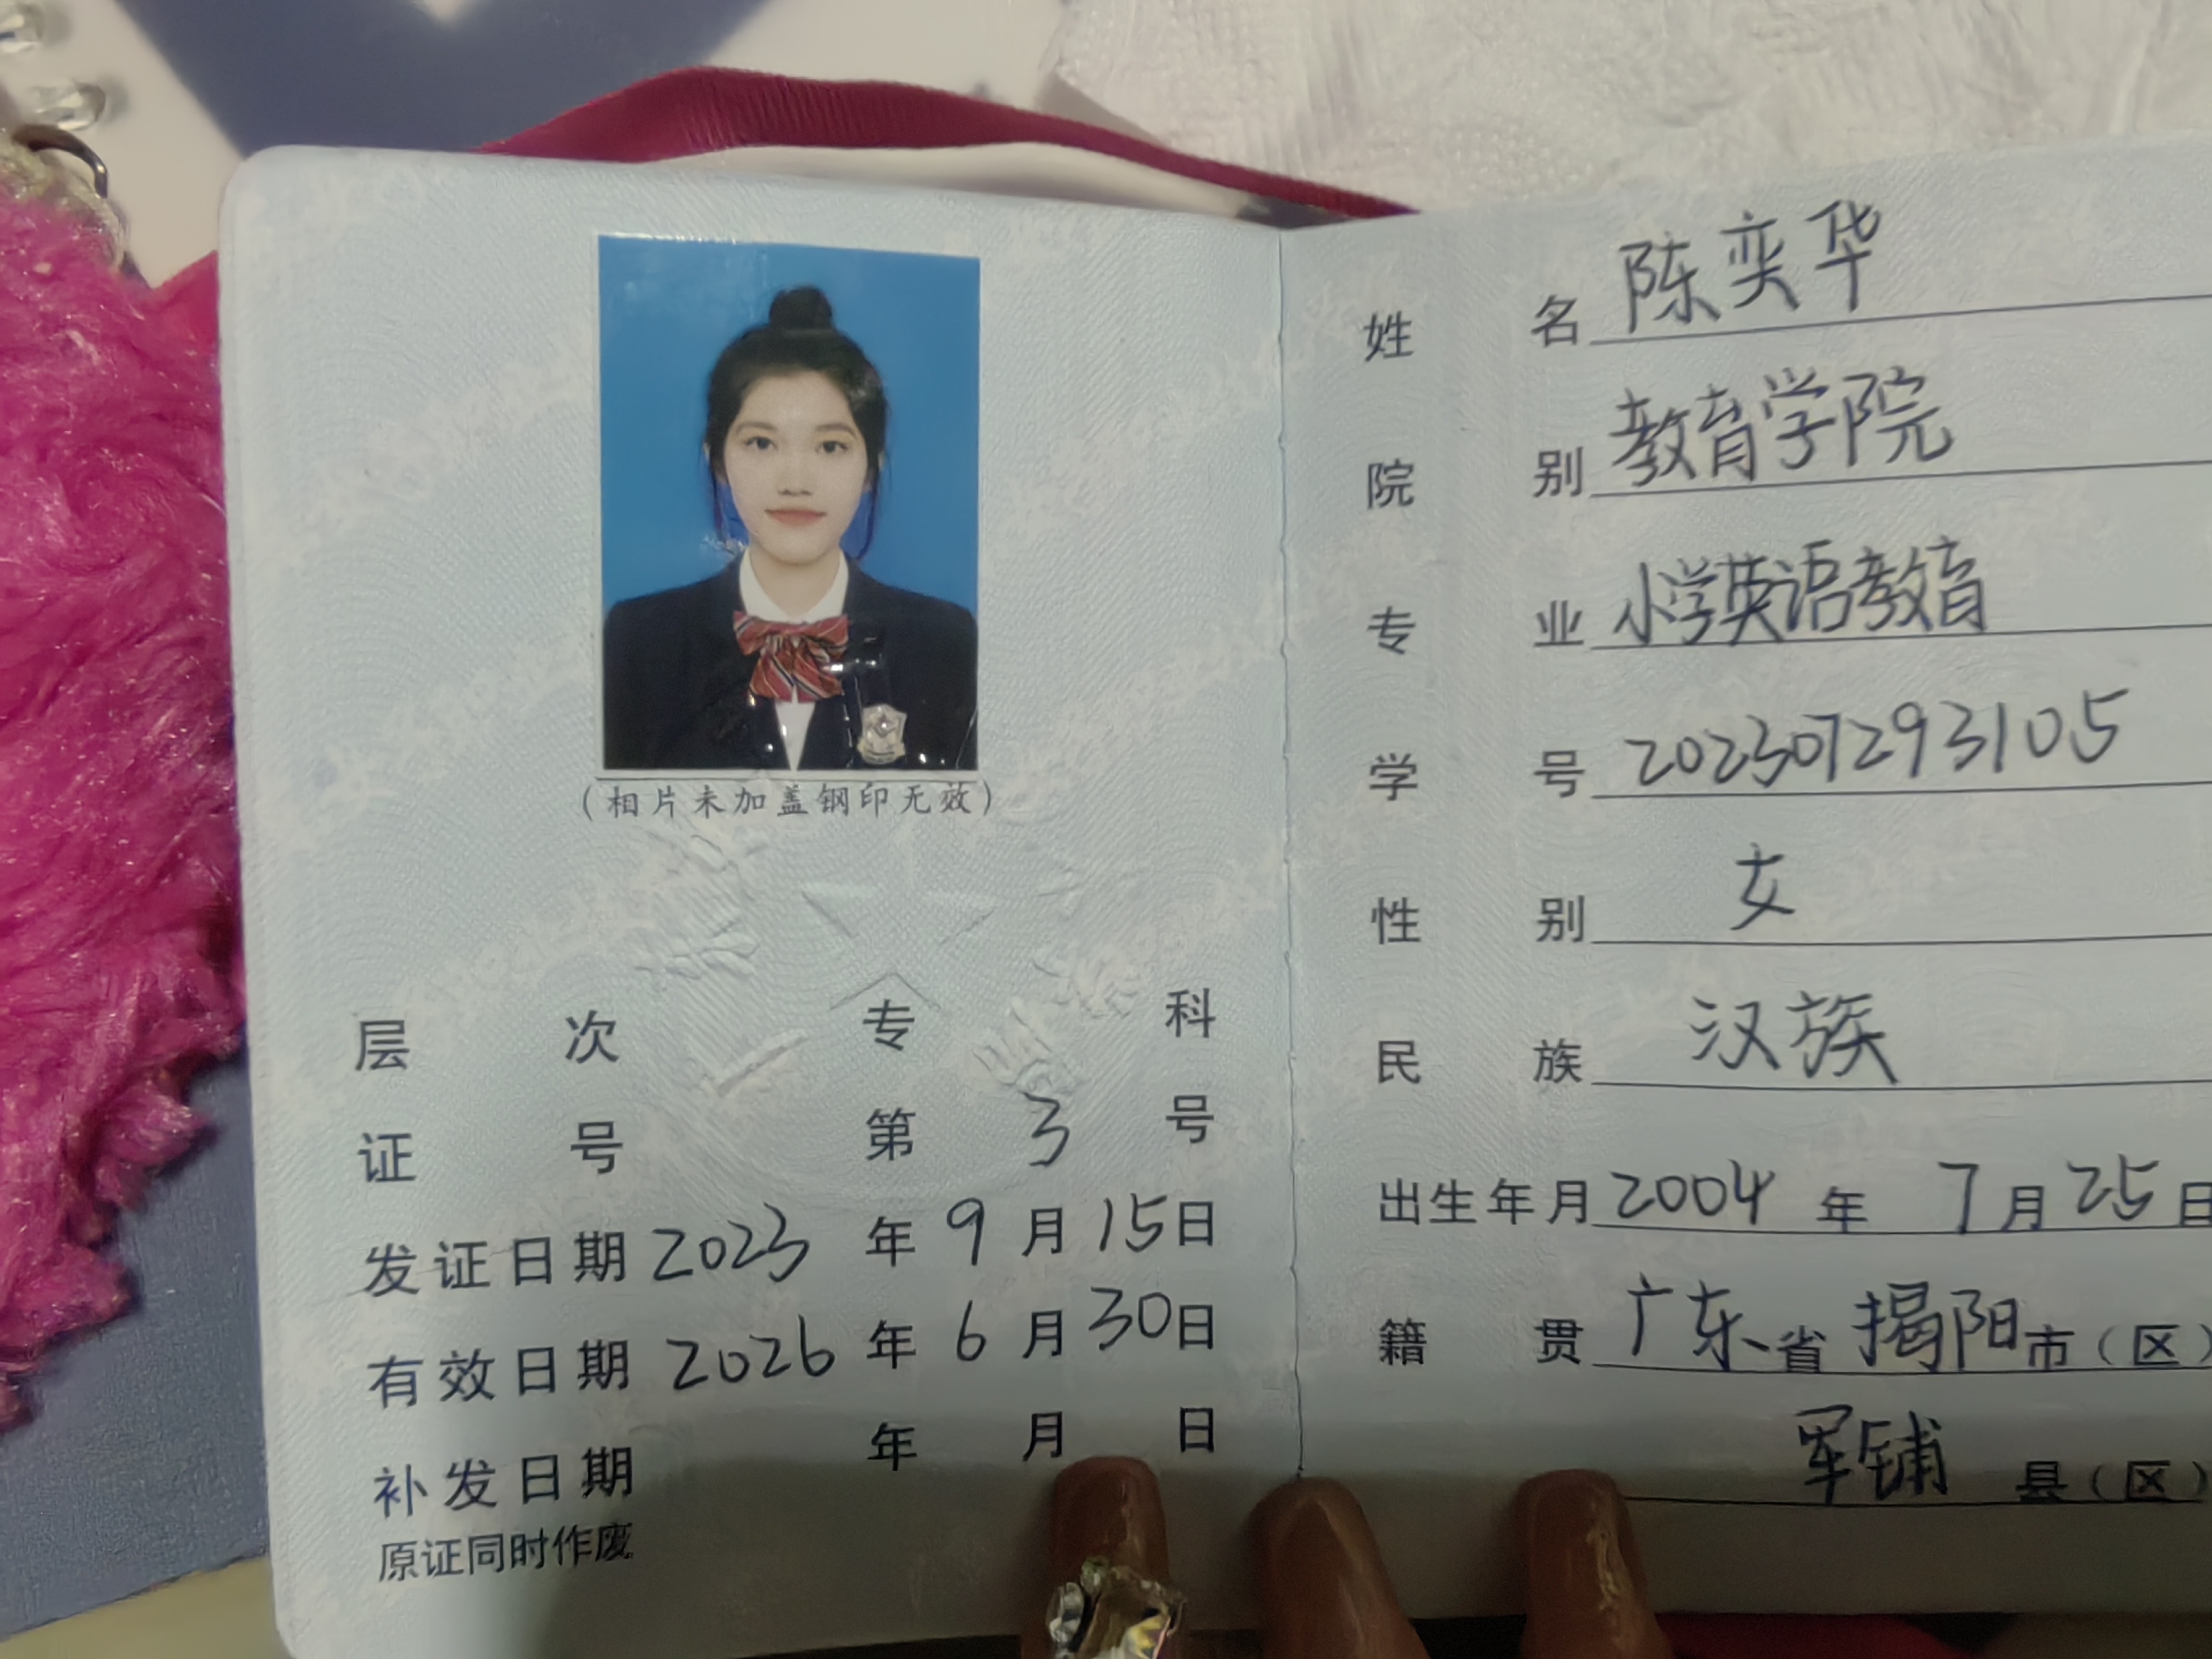 （相片未加盖钢印无效）
层次 专科
证号 第3号
发证日期 2023年9月15日
有效日期 2026年6月30日
补发日期 年月日
原证同时作废
姓名 陈奕华
院别 教育学院
专业 小学英语教育
学号 202307293105
性别 女
民族 汉族
出生年月 2004年7月25日
籍贯 广东省揭阳市（区）
军铺县（区）